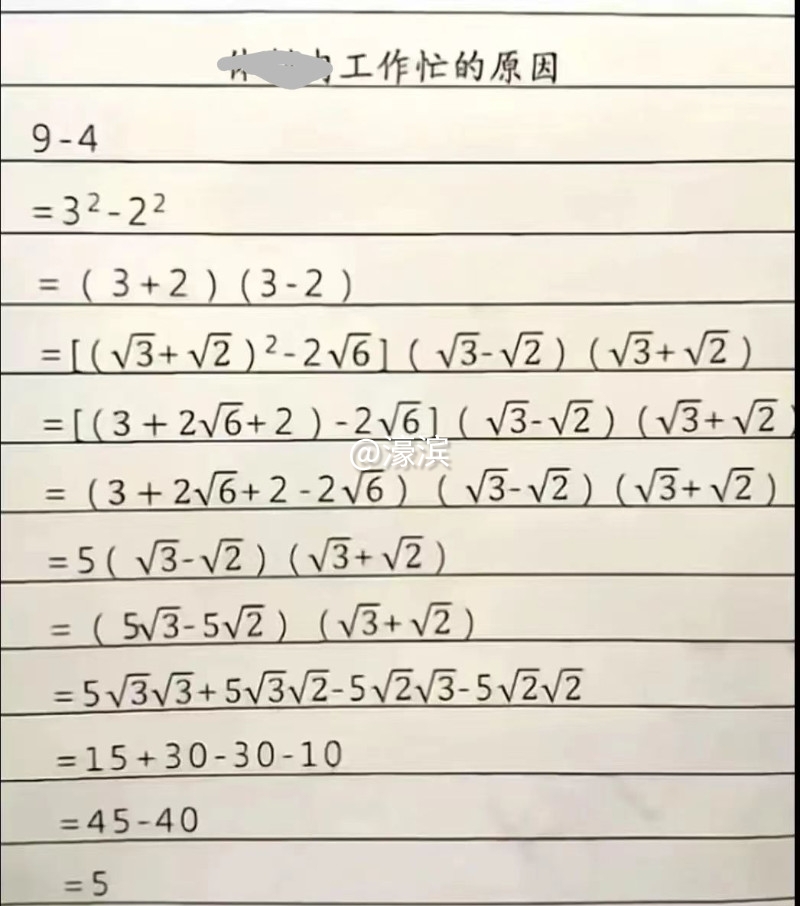 工作忙的原因
9-4
=3²-2²
=(3+2)(3-2)
=[(√3+√2)²-2√6](√3-√2)(√3+√2)
=[(3+2√6+2)-2√6](√3-√2)(√3+√2)
@濠滨
=(3+2√6+2-2√6)(√3-√2)(√3+√2)
=5(√3-√2)(√3+√2)
=(5√3-5√2)(√3+√2)
=5√3√3+5√3√2-5√2√3-5√2√2
=15+30-30-10
=45-40
=5